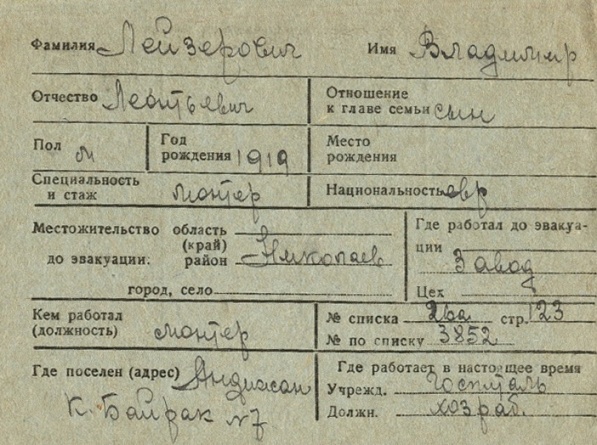 Фамилия Лейзерович Имя Владимир
Отчество Леонтьевич Отношение
к главе семьи сын
Пол м Год
рождения 1919 Место
рождения
Специальность
и стаж монтер Национальность евр
Местожительство область
(край)
до эвакуации: район Николаев
город, село
Где работал до эвакуа-
ции
Завод
Цех
Кем работал
(должность) монтер
№ списка 26а стр. 123
№ по списку 3852
Где поселен (адрес) Андижан
К. Байрак № 7
Где работает в настоящее время
Учрежд. Госпиталь
Должн. хозраб.